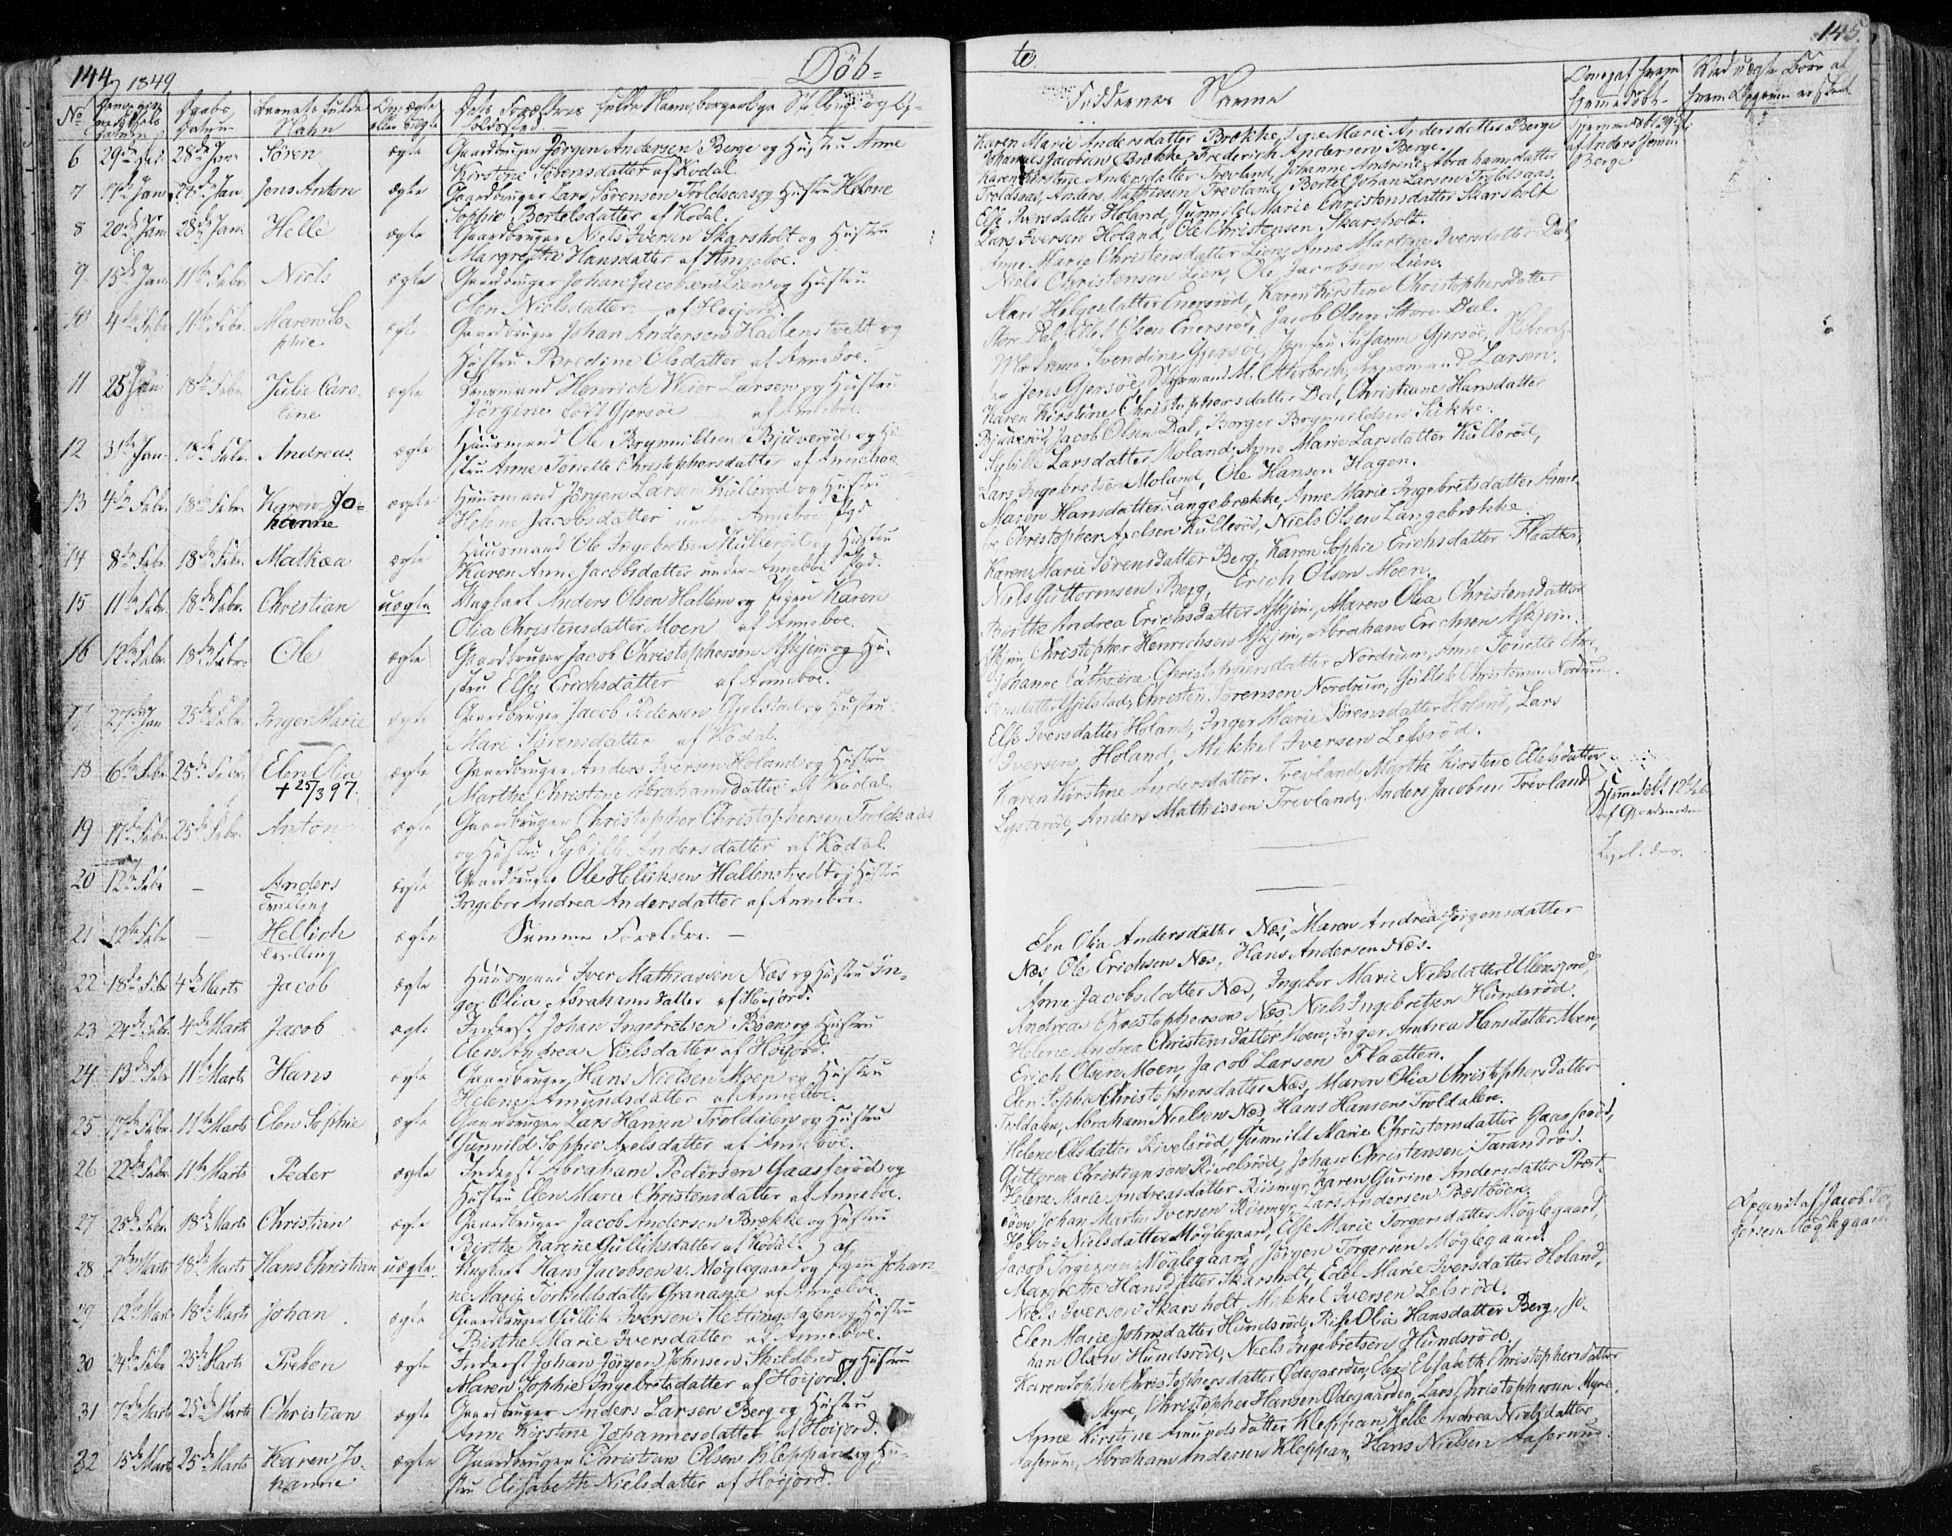 144, 1849
Døb=
No
Barnets fulde
Navn
Forældres fulde Navn, borgerlige Stilling og
6 28de Jan Søren ægte Gaardbruger Jørgen Andersen Berge og Hustru Anne
Kirstine Sørensdatter af Kodal.
7 Jan Jens Anton ægte Gaardbruger Lars Sørensen Troldsaas og Hustru Helene
Sophie Bertelsdatter af Kodal.
8 20de Jan 28de Jan Helle ægte Gaardbruger Niels Iversen Skarsholt og Hustru
Margrethe Hansdatter af Anneboe.
9 15de Jan 11te Febr. Niels ægte Gaardbruger Johan Jacobsen Lien og Hustru
Elen Nielsdatter af Høijord.
10 4de Febr 11te Febr. Maren So=
phie ægte Gaardbruger Johan Andersen Hallenstvedt og
Hustru Bredine Olsdatter af Anneboe.
11 25 Jan 18de Febr. Julie Caro=
line ægte Lensmand Henrich Larsen og Hustru
Jørgine Gjersøe af Anneboe.
12 31te Jan 18de Febr. Andreas ægte Huusmand Ole Brynnildsen Bjuverød og Hu
stru Anne Tonette Christophersdatter af Anneboe
13 4de Febr. 18de Febr. Karen Jo=
hanne ægte Huusmand Jørgen Larsen Kullerød og Hustru
Helene Jacobsdatter under Anneboe
14 8de Febr. 18de Febr. Mathea ægte Huusmand Ole Ingebretsen Kullerød og Hustru
Karen Anne Jacobsdatter under Anneboe
15 11te Febr. 18de Febr. Christian uægte Ungkarl Anders Olsen Hallem og Pigen Karen
Olia Christensdatter Moen af Anneboe.
16 12te Febr. 18de Febr. Ole ægte Gaardbruger Jacob Christophersen Askjem og Hu=
stru Else Erichsdatter af Anneboe.
17 27de Jan 25de Febr. Inger Marie ægte Gaardbruger Jacob Pedersen Gjelstad og Hustru
Mari Sørensdatter af Kodal.
18 6te Febr. 25de Febr. Elen Olia
+ 25/3 97. ægte Gaardbruger Anders Iversen Holand og Hustru
Marthe Christine Abrahamsdatter af Kodal.
19 17de Febr. 25de Febr. Anton ægte Gaardbruger Christopher Christophersen Troldsaas
og Hustru Sybille Andersdatter af Kodal.
20 12te Febr — Anders
Tvilling ægte Gaardbruger Ole Hellichsen Hallenstvedt og Hustru
Ingebor Andrea Andersdatter af Anneboe.
21 12te Febr — Hellich
Tvilling ægte Samme Forældre. —
22 18de Febr 4de Marts Jacob ægte Huusmand Iver Mathiassen Næs og Hustru In=
ger Olia Abrahamsdatter af Høijord.
23 24de Febr. 4de Marts Jacob ægte Inderst Johan Ingebretsen Bøen og Hustru
Elen Andrea Nielsdatter af Høijord.
24 13de Febr 11te Marts Hans ægte Gaardbruger Hans Nielsen Moen og Hustru
Helene Amundsdatter af Anneboe.
25 17de Febr. 11te Marts Elen Sophie ægte Gaardbruger Lars Hansen Troldalen og Hustru
Gunnild Sophie Axelsdatter af Anneboe.
26 22de Febr. 11te Marts Peder ægte Inderst Abraham Pedersen Gaasserød og
Hustru Elen Marie Christensdatter af Anneboe.
27 25de Febr. 18de Marts Christian ægte Gaardbruger Jacob Andersen Brække og Hustru
Birthe Karine Gulliksdatter af Kodal.
28 2den Marts 18de Marts Hans Christian uægte Ungkarl Hans Jacobsen Møglegaard og Pigen Johan=
ne Marie Tormildsdatter Granaasæ af Anneboe.
29 12te Marts 18de Marts Johan ægte Gaardbruger Gullik Iversen og Hustru
Birthe Marie Iversdatter af Anneboe.
30 24de Febr 25de Marts Preben ægte Inderst Johan Jørgen Johnsen Skildbred og Hustru
Maren Sophie Ingebretsdatter af Høijord.
31 7de Marts 25de Marts Christian ægte Gaardbruger Anders Larsen Berg og Hustru
Anne Kirstine Johannesdatter af Høijord.
32 15de Marts 25de Marts Karen Jo=
hanne ægte Gaardbruger Christian Olsen Kleppan og Hu=
stru Elisabeth Nielsdatter af Høijord.
te
145.
Faddernes Navne
Karen Marie Andersdatter Brække, Marie Andersdatter Berge
Johannes Jacobsen Brække, Frederich Andersen Berge.
Karen Kirstine Andersdatter Trevland, Johanne Andrine Abrahamsdatter
Troldsaas, Anders Mathissen Trevland, Bertel Johan Larsen Troldsaas.
Else Iversdatter Holand, Gunnild Marie Christensdatter Skarsholt
Lars Iversen Holand, Ole Christensen Skarsholt.
Anne Marie Christensdatter Lien, Anne Martine Iversdatter Dal,
Niels Christensen Lien, Ole Jacobsen Lien.
Mari Helgesdatter Enersrød, Karen Kirstine Christophersdatter
Store Dal, Olsen Enersrød, Jacob Olsen Store Dal.
Svendine Gjersøe, Jomfru Susanne Gjersøe,
Jens Gjersøe, M. Otterbech, Lensmand Larsen.
Karen Kirstine Christophersdatter Dal, Christiane Hansdatter
Bjuverød, Jacob Olsen Dal, Borger Brynnildsen
Sybille Larsdatter Moland, Anne Marie Larsdatter Kullerød,
Lars Ingebretsen Moland, Ole Hansen Hagen.
Maren Hansdatter Langebrække, Anne Marie Ingebretsdatter Anne=
boe Christopher Axelsen Kullerød, Niels Olsen Langebrække.
Karen Marie Sørensdatter Berg, Karen Sophie Erichsdatter Flaatten,
Niels Guttormsen Berg, Erich Olsen Moen.
Birthe Andrea Erichsdatter Askjem, Maren Olia Christensdatter
Askjem Christopher Henrichsen Askjem, Abraham Erichsen Askjem.
Johanne Cathrine Christophersdatter Nordrum, Anne Tonette
Gjelstad, Christen Sørensen Nordrum, Christensen Nordrum.
Else Iversdatter Holand, Inger Marie Sørensdatter Holand, Lars
Iversen Holand, Mikkel Iversen Lefsrød.
Karen Kirstine Andersdatter Trevland, Marthe Kirstine Ellefsdatter
Lysterød, Anders Mathissen Trevland, Anders Jacobsen Trevland
Elen Olia Andersdatter Næs, Maren Andrea Jørgensdatter
Næs, Ole Erichsen Næs, Hans Andersen Næs.
Anne Jacobsdatter Næs, Ingebor Marie Nielsdatter
Andreas Christophersen Næs, Niels Ingebretsen Hundsrød.
Helene Andrea Christensdatter Moen, Inger Andrea Hansdatter Moen,
Erich Olsen Moen, Jacob Larsen Flaatten.
Elen Sophie Christophersdatter Næs, Maren Olia Christophersdatter
Troldalen, Abraham Nielsen Næs, Hans Hansen Troldalen.
Helene Olsdatter Rivelsrød, Gunnild Marie Christensdatter Gaasserød,
Guttorm Christiansen Rivelsrød, Johan Christensen Tarandrød.
Helene Marie Andreasdatter Riismyr, Karen Gurine Andersdatter Præst=
bøen Johan Martin Iversen Riismyr, Lars Andersen Præstbøen.
Nielsdatter Møglegaard, Else Marie Torgersdatter Møglegaard,
Jacob Torgersen Møglegaard, Jørgen Torgersen Møglegaard.
Margrethe Hansdatter Skarsholt, Edel Marie Iversdatter Holand,
Niels Iversen Skarsholt Mikkel Iversen Lefsrød.
Elen Marie Johnsdatter Hundsrød, Olia Hansdatter Berg, Jo=
han Olsen Hundsrød, Niels Ingebretsen Hundsrød.
Karen Sophie Christophersdatter Ødegaarden, Elen Elisabeth Christophersdatter
Myre, Christopher Hansen Ødegaarden, Lars Christophersen Myre.
Anne Kirstine Kleppan, Helle Andrea Nielsdatter
Aaserum, Abraham Andersen Kleppan, Hans Nielsen Aaserum.
af Anders
Berge
Hjemmedøbt 12 Feb
af
Opgivet af Jacob
Møglegaard